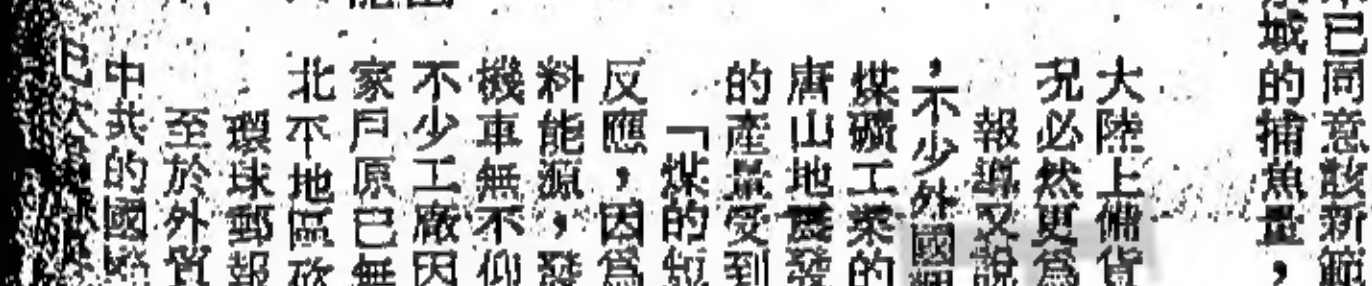 已同意該新
域的捕魚量，
大陸上備貨
況必然更為
報導又說
，不少外國
煤礦工業的
唐山地震發
的產量受到
「煤的短
反應，因為
料能源，發
機車無不仰
不少工廠因
家戶原已無
北不地區砍
環球郵報
至於外貿
中共的國際